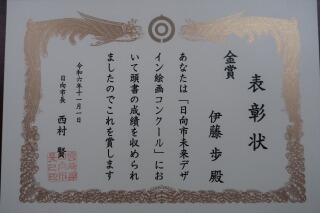 表彰状
金賞
伊藤 歩 殿
あなたは「日向市未来デザ
イン絵画コンクール」にお
いて頭書の成績を収められ
ましたのでこれを賞します
令和六年十一月一日
日向市長 西村 賢